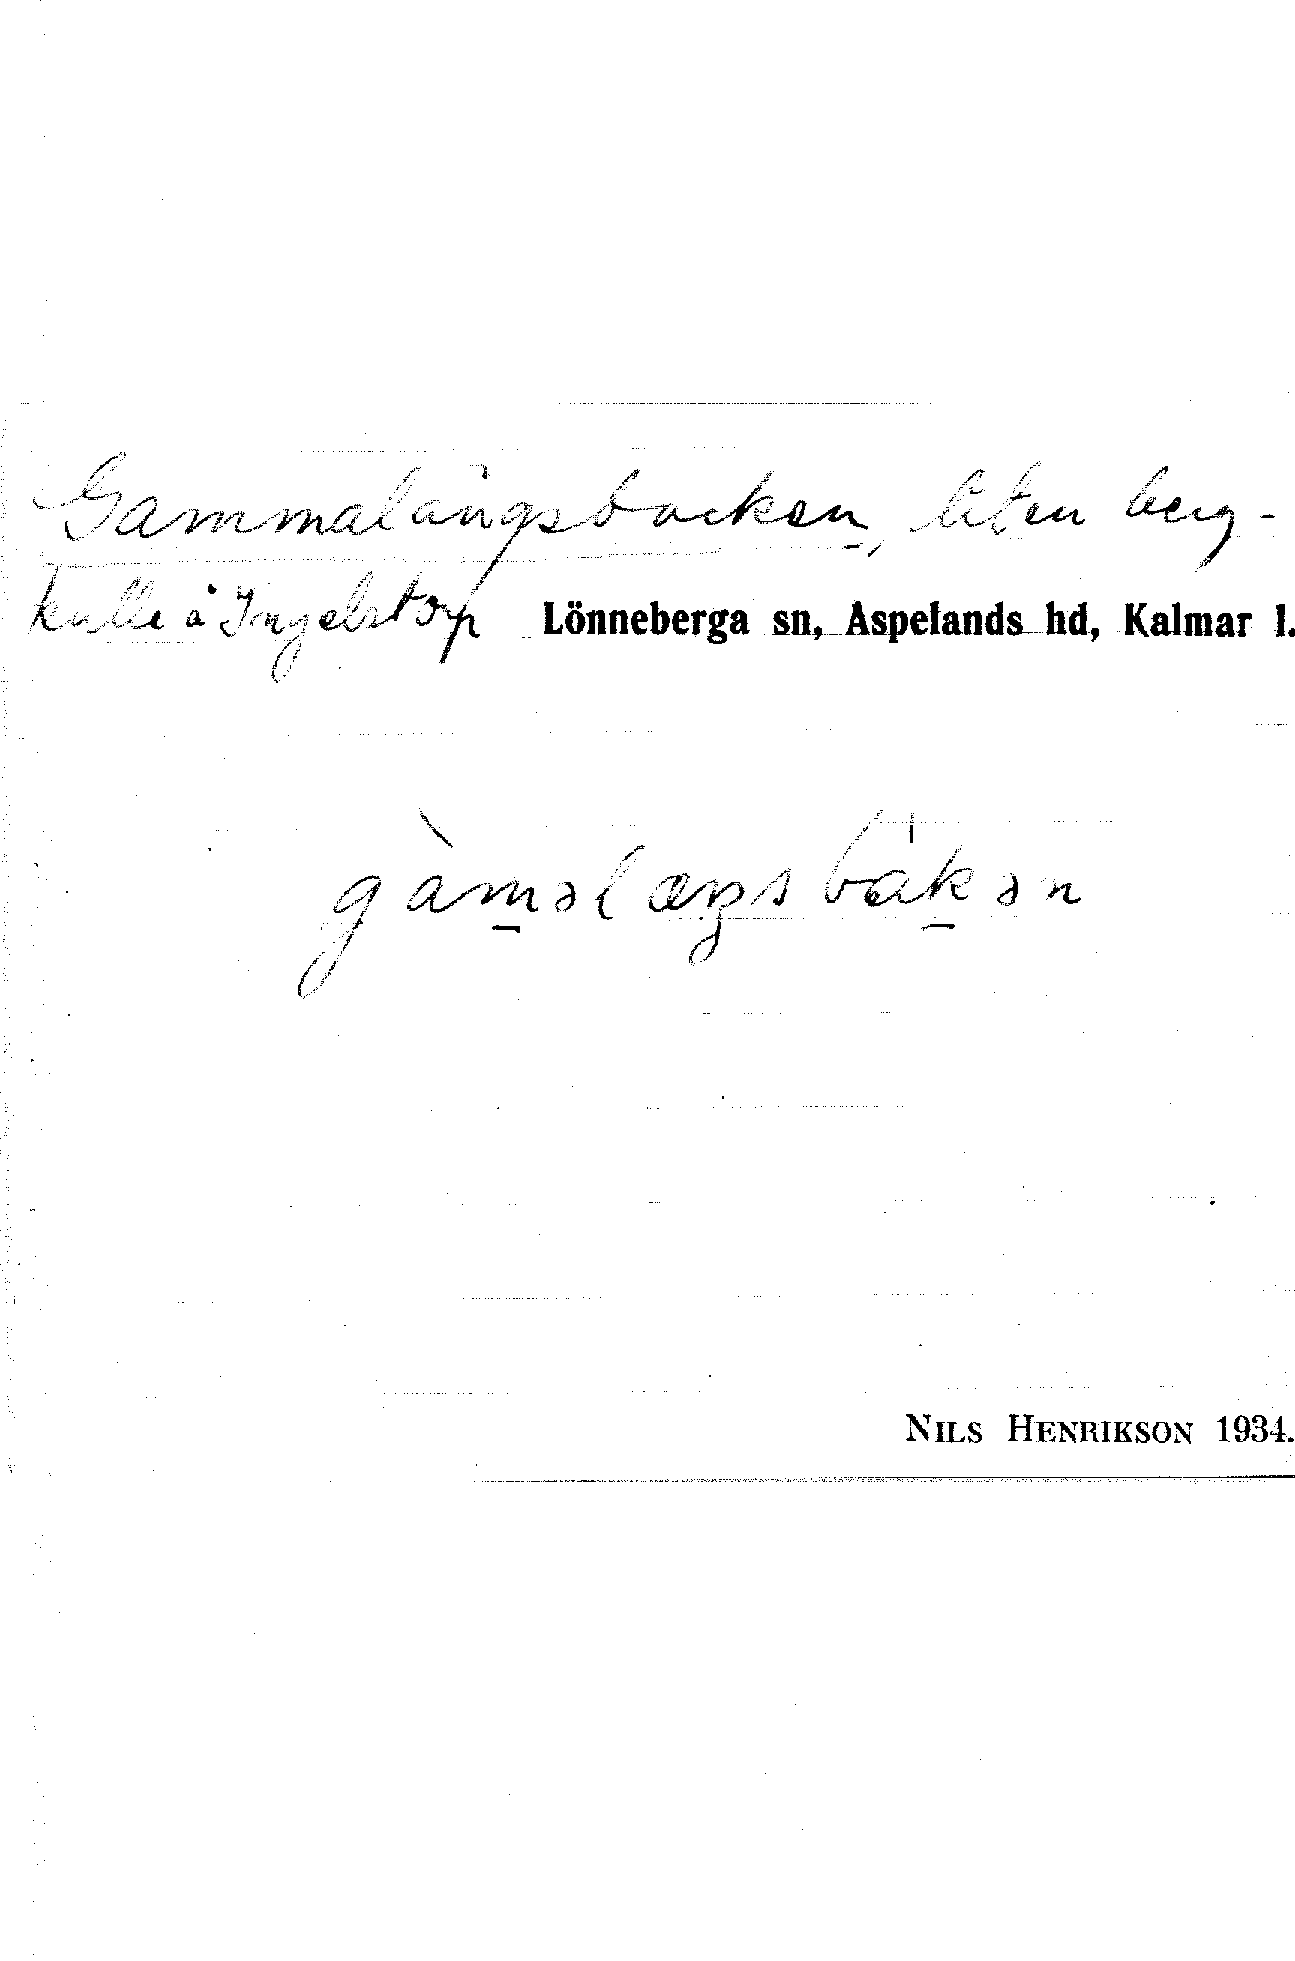 Gammalängsbacken, liten berg-
kulle å Ingelstorp Lönneberga sn, Aspelands hd, Kalmar l.
gàməlæŋsbákən
NILS HENRIKSON 1934.